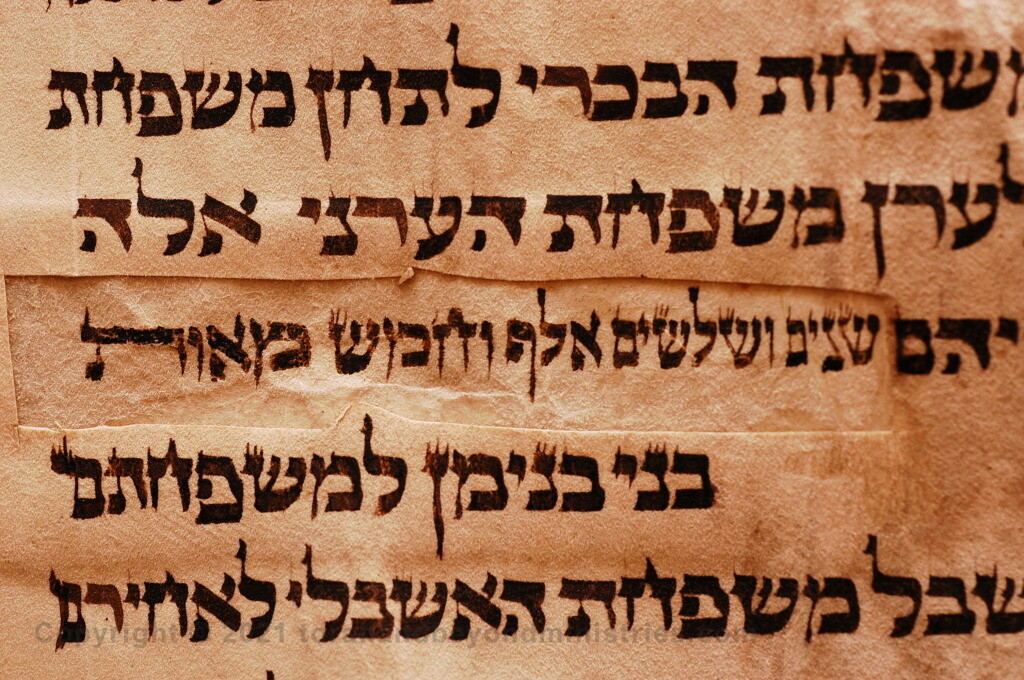 משפחת הבכרי לתחן משפחת
לערן משפחת הערני אלה
יהם שנים ושלשים אלף וחמש מאות
בני בנימן למשפחתם
שבל משפחת האשבלי לאחירם
Copyright © 2021